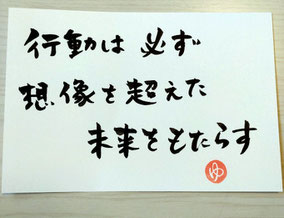 行動は 必ず
想像を超えた
未来をもたらす
ゆ